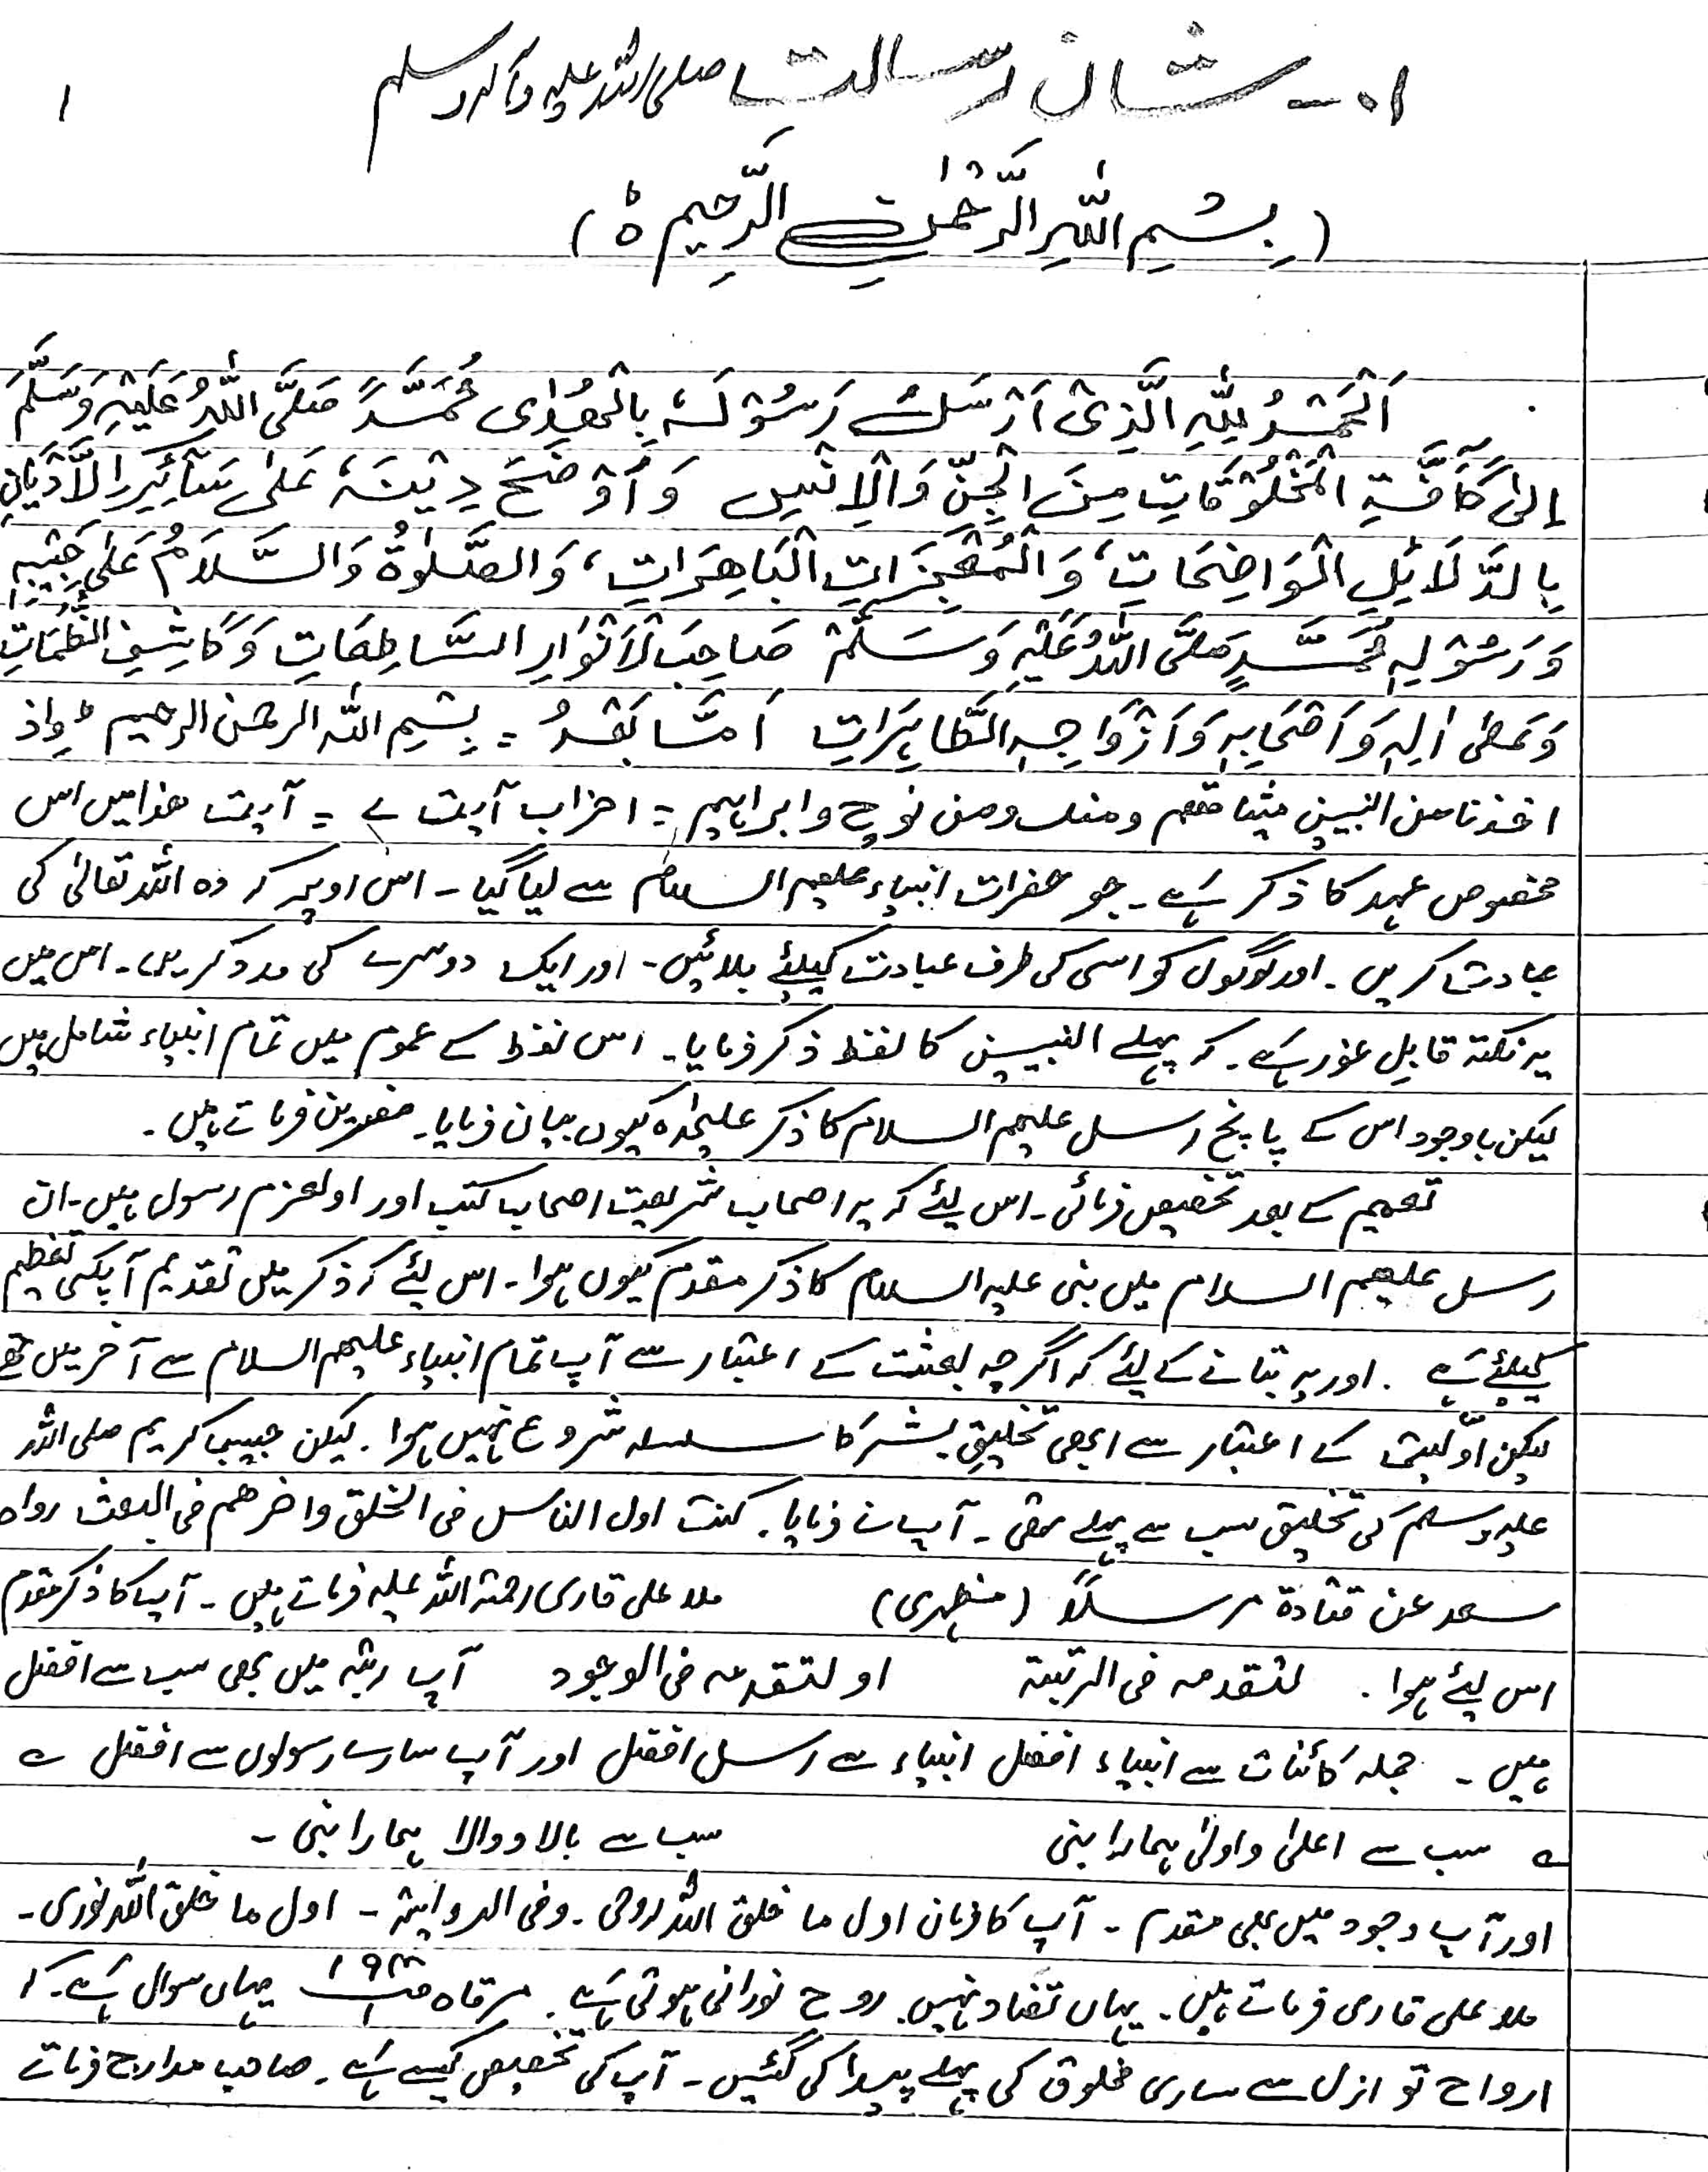 ۱۔ شان رسالت صلی اللہ علیہ وآلہ وسلم
۱
(بِسْمِ اللّٰہِ الرَّحْمٰنِ الرَّحِیْمِ ہ)
اَلْحَمْدُ لِلّٰہِ الَّذِیْ اَرْسَلَ رَسُوْلَہٗ بِالْھُدٰی مُحَمَّدً صَلَّی اللّٰہُ عَلَیْہِ وَسَلَّمَ
اِلٰی کَآفَّۃِ الْمَخْلُوْقَاتِ مِنَ الْجِنِّ وَالْاِنْسِ وَ اَوْضَحَ دِیْنَہٗ عَلٰی سَآئِرِ الْاَدْیَانِ
بِالدَّلَائِلِ الْوَاضِحَاتِ، وَالْمُعْجِزَاتِ الْبَاھِرَاتِ، وَالصَّلٰوۃُ وَالسَّلَامُ عَلٰی حَبِیْبِہٖ
وَرَسُوْلِہٖ مُحَمَّدٍ صَلَّی اللّٰہُ عَلَیْہِ وَسَلَّمْ صَاحِبِ الْاَنْوَارِ السَّاطِعَاتِ وَکَاشِفِ الظُّلُمَاتِ
وَعَلٰی اٰلِہٖ وَاَصْحَابِہٖ وَاَزْوَاجِہِ الطَّاہِرَاتِ اَمَّا بَعْدُ = بِسْمِ اللّٰہ الرحمٰن الرحیم ط وَاِذ
اخذنا من النبیین میثاقھم ومنک ومن نوح وابراہیم = احزاب آیت ے = آیت ھذا میں اس
مخصوص عہد کا ذکر ہے۔ جو حضرات انبیاء علیھم السلام سے لیا گیا۔ اس اوپر کہ وہ اللہ تعالیٰ کی
عبادت کریں۔ اور لوگوں کو اسی کی طرف عبادت کیلئے بلائیں۔ اور ایک دوسرے کی مدد کریں۔ اس میں
یہ نکتہ قابلِ غور ہے۔ کہ پہلے النبیین کا لفظ ذکر فرمایا۔ اس لفظ کے عموم میں تمام انبیاء شامل ہیں
لیکن باوجود اس کے پانچ رسل علیھم السلام کا ذکر علیحدہ کیوں بیان فرمایا۔ مفسرین فرماتے ہیں۔
تعمیم کے بعد تخصیص فرمائی۔ اس لیئے کہ یہ اصحاب شریعت اصحاب کتب اور اولعزم رسول ہیں۔ ان
رسل علیھم السلام میں نبی علیہ السلام کا ذکر مقدم کیوں ہوا۔ اس لیئے کہ ذکر میں تقدیم آپکی تعظیم
کیلئے ہے۔ اور یہ بتانے کے لیئے کہ اگرچہ بعثت کے اعتبار سے آپ تمام انبیاء علیھم السلام سے آخر میں تھے
لیکن اوّلیت کے اعتبار سے ابھی تخلیقِ بشر کا سلسلہ شروع نہیں ہوا۔ لیکن حبیب کریم صلی اللہ
علیہ وسلم کی تخلیق سب سے پہلے تھی۔ آپ نے فرمایا۔ کنت اول الناس فی الخلق واخرھم فی البعث رواہ
سعد عن قتادۃ مرسلاً (مظہری) ملا علی قاری رحمۃ اللہ علیہ فرماتے ہیں۔ آپ کا ذکر مقدم
اس لیئے ہوا۔ لتقدمہ فی الرتبۃ او لتقدمہ فی الوجود آپ رتبہ میں بھی سب سے افضل
ہیں۔ جملہ کائنات سے انبیاء افضل انبیاء سے رسل افضل اور آپ سارے رسولوں سے افضل ے
ے سب سے اعلیٰ و اولیٰ ہمارا نبی سب سے بالا و والا ہمارا نبی۔
اور آپ وجود میں بھی مقدم۔ آپ کا فرمان اول ما خلق اللہ روحی۔ وفی الروایۃ۔ اول ما خلق اللہ نوری۔
ملا علی قاری فرماتے ہیں۔ یہاں تضاد نہیں۔ روح نورانی ہوتی ہے۔ مرقاہ ص ۱۹۴ ج۱ یہاں سوال ہے۔ کہ
ارواح تو ازل سے ساری مخلوق کی پہلے پیدا کی گئیں۔ آپ کی تخصیص کیسے ہے۔ صاحب مدارج فرماتے